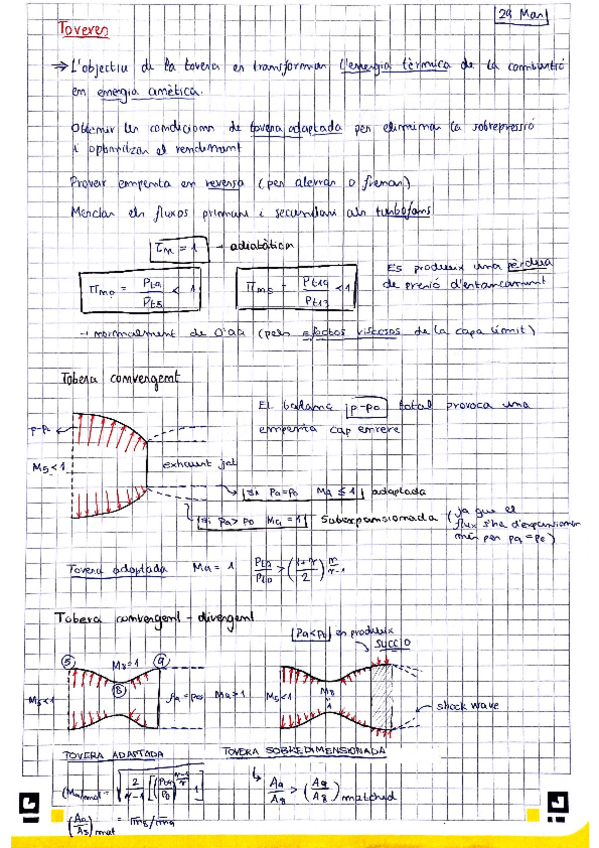 29 Mar
Toveres
⇒ L'objectiu de la tovera es transformar l'energia tèrmica de la combustió
en energia cinètica.
Obtenir les condicions de tovera adaptada per eliminar la sobrepressió
i optimitzar el rendiment
Provar empenta en reversa (per aterrar o frenar)
Mesclar els fluxos primari i secundari als turbofans
τn = 1 - adiabàtica
πno = Pt9 / Pt5 < 1
πns = Pt19 / Pt13 < 1
Es produeix una pèrdua
de pressió d'estancament
→ normalment de 0'99 (pels efectes viscosos de la capa límit)
Tobera convergent
p-po
M5 < 1
exhaust jet
El balanç p-po total provoca una
empenta cap enrere
si P9=Po M9 ≤ 1 adaptada
si P9 > Po M9 = 1 Subexpansionada (ja que el
flux s'ha d'expansionar
més per p9=po)
Tovera adaptada M9 = 1 Pt9/Pto > ((1+γ)/2)^(γ/(γ-1))
Tobera convergent - divergent
P9<Po es produeix
succió
5 M8=1 9
8
M5<1 P9 = Po M9>1
M5<1 M8 1
shock wave
TOVERA ADAPTADA
TOVERA SOBREDIMENSIONADA
(M9)mat = √(2/(γ-1) [(Pt9/Po)^((γ-1)/γ) - 1])
A9/A8 > (A9/A8) matched
(A9/A8) mat = m̄8/m̄9